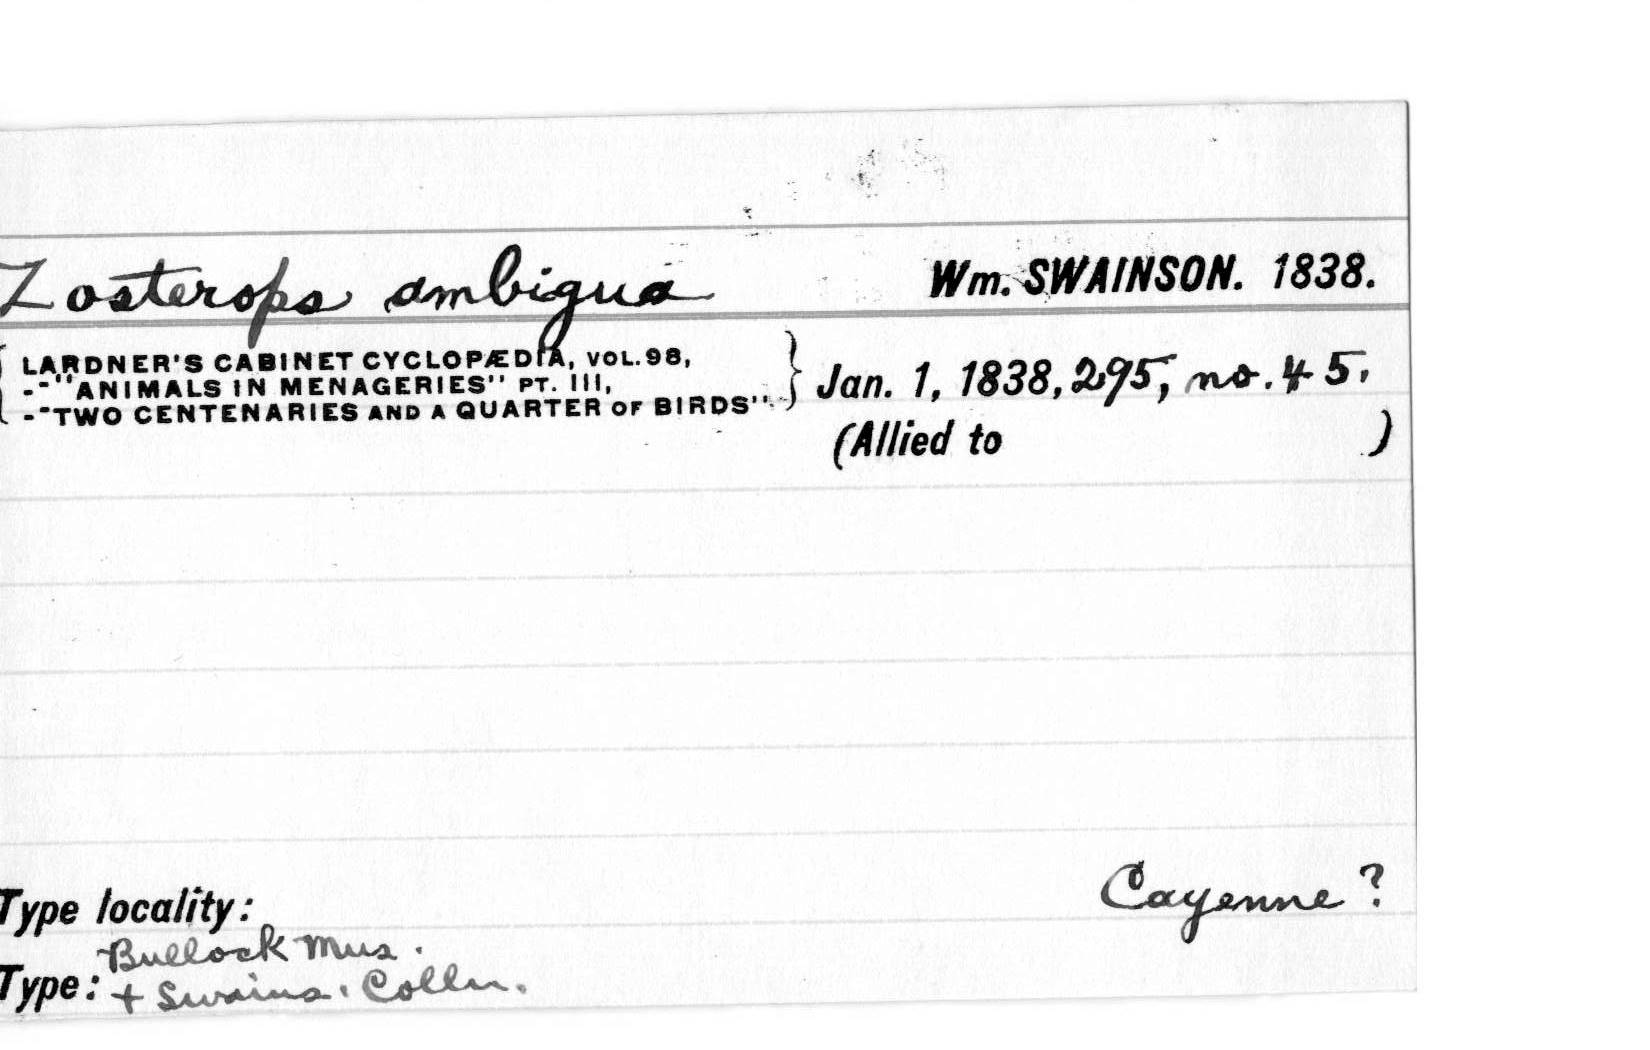 Zosterops ambigua Wm. SWAINSON. 1838.
{ LARDNER'S CABINET CYCLOPÆDIA, VOL.98,
--"ANIMALS IN MENAGERIES" PT. III, } Jan. 1, 1838, 295, no. 45.
--"TWO CENTENARIES AND A QUARTER OF BIRDS"
(Allied to )
Cayenne?
Type locality:
Bullock Mus.
Type: + Swains. Colln.